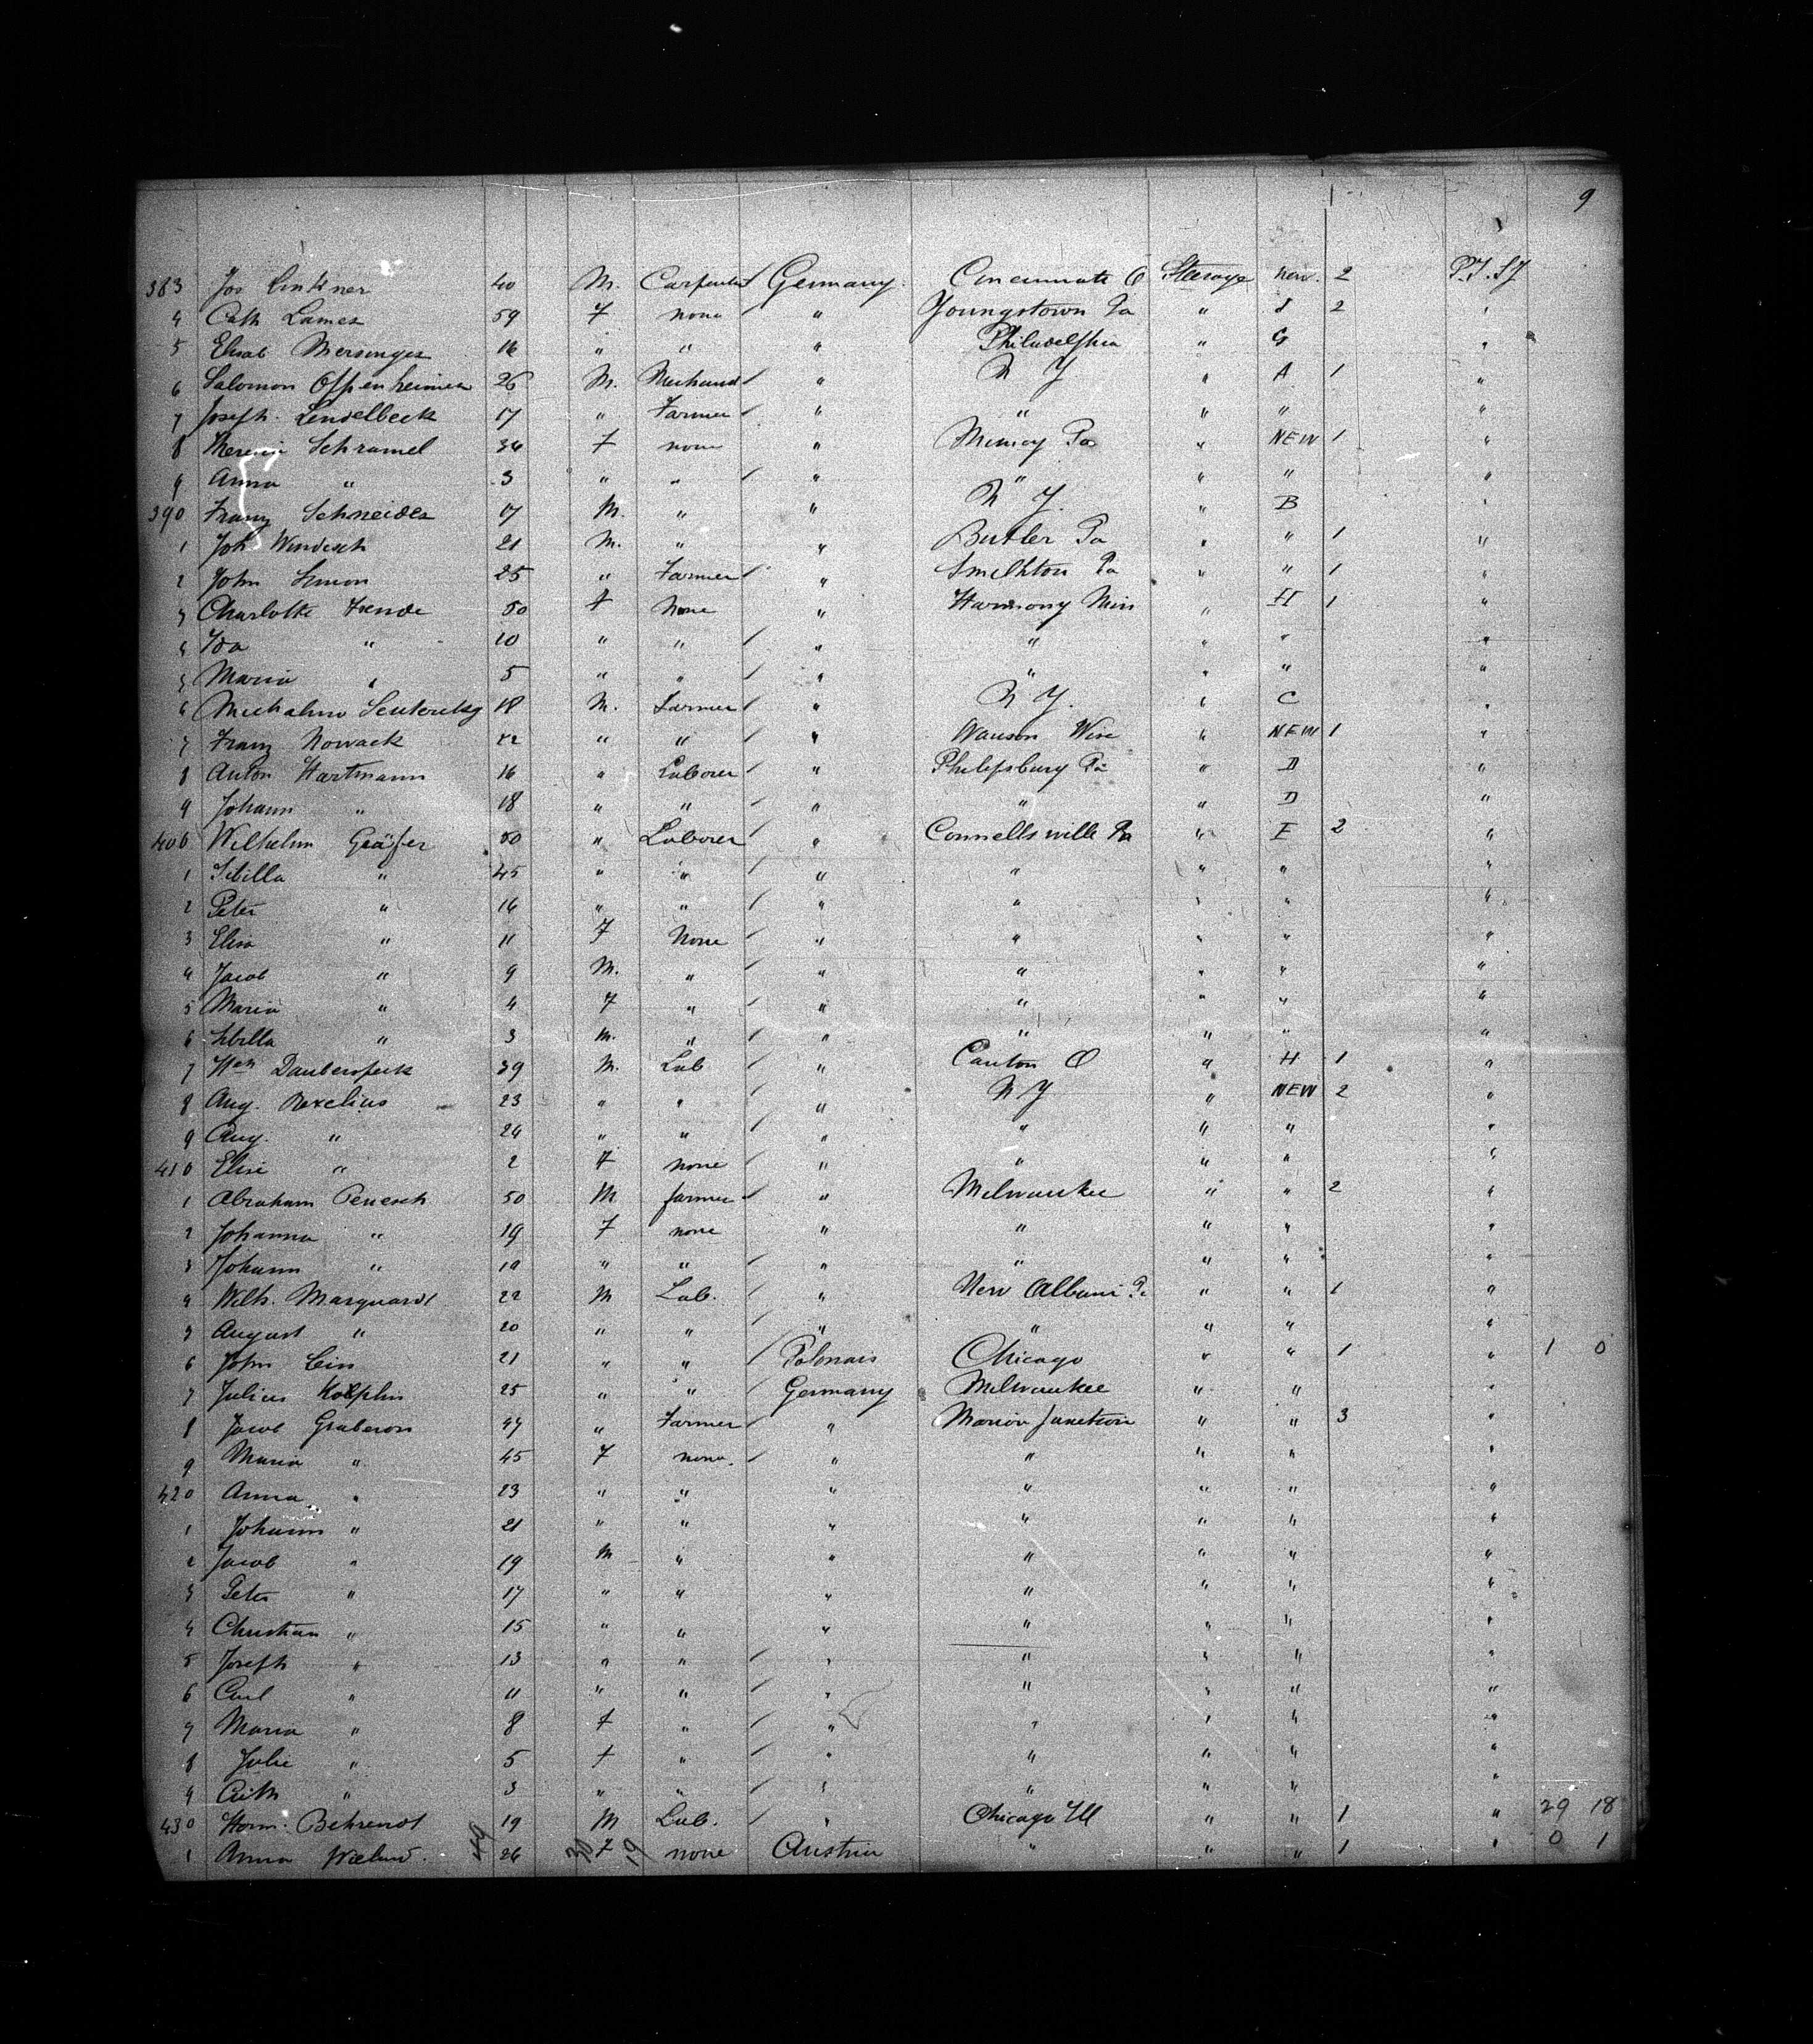 9
383 Jos Lintner 40 M. Carpenter Germany. Cincinnati O Steerage new. 2 P.J. SJ
4 Cath Lames 59 F none " Youngstown Pa " J 2 "
5 Elisab Mersinger 16 " " " Philadelphia " G "
6 Salomon Oppenheimer 26 M. Merchand " N Y " A 1 "
7 Joseph Lendelbeck 17 " Farmer " " " " "
8 Schramel 34 F none " Muncy Pa " NEW 1 "
9 Anna " 3 " " " " " " "
390 Franz Schneider 17 M. " " N Y. " B "
1 Joh Windisch 21 M. " " Butler Pa " " 1 "
2 John Simon 25 " Farmer " Smelhton Pa " " 1 "
3 Charlotte Frende 50 F None " Harmony Min " H 1 "
4 Ida " 10 " " " " " " "
5 Maria " 5 " " " " " " "
6 18 M. Farmer " N Y. " C "
7 Franz Nowack 22 " " " Wauson Wisc " NEW 1 "
8 Anton Hartmann 16 " Laborer " Philipsburg Pa " D "
9 Johann " 18 " " " " " D "
400 Wilhelm Gräfer 50 " Laborer " Connellsville Pa " E 2 "
1 Sibilla " 45 " " " " " " "
2 Peter " 16 " " " " " " "
3 Elisa " 11 F None " " " " "
4 Jacob " 9 M. " " " " " "
5 Maria " 4 F " " " " " "
6 Sibilla " 3 M. " " " " " "
7 Dauberspeck 39 M. Lab " Canton O " H 1 "
8 Aug. Rexelius 23 " " " N Y " NEW 2 "
9 Aug. " 24 " " " " " " "
410 Elise " 2 F none " " " " "
1 Abraham Penesch 50 M farmer " Milwaukee " " 2 "
2 Johanna " 19 F none " " " " "
3 Johann " 19 " " " " " " "
4 Wilh. Marquardt 22 M Lab. " New Albani Pa " " 1 "
5 August " 20 " " " " " " "
6 John 21 " " Polonais Chicago " " 1 " 1 0
7 Julius 25 " " Germany Milwaukee " " "
8 Jacob Graberon 47 " Farmer " Marion Junction " " 3 "
9 Maria " 45 F none. " " " " "
420 Anna " 23 " " " " " " "
1 Johann " 21 " " " " " " "
2 Jacob " 19 M " " " " " "
3 Peter " 17 " " " " " " "
4 Christian " 15 " " " " " " "
5 Joseph " 13 " " " " " " "
6 Carl " 11 " " " " " " "
7 Maria " 8 F " " " " " "
8 Julie " 5 F " " " " " "
9 Cath " 3 " " " " " " "
430 Herm. Behrendt 19 M Lab. " Chicago Ill " " 1 " 29 18
1 Anna 49 26 30 F 19 none Austria " " " 1 " 0 1